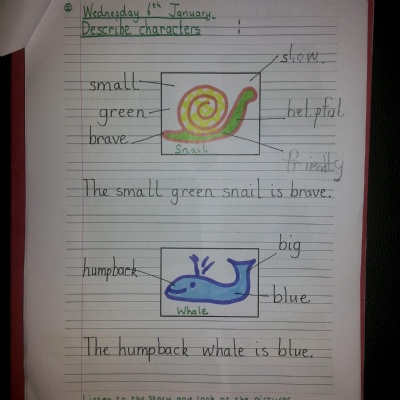 Wednesday 6th January.
Describe characters
small
slow.
green
helpful
brave
Snail
friendly
The small green snail is brave.
big
humpback
blue
Whale
The humpback whale is blue.
Listen to the story and look at the pictures